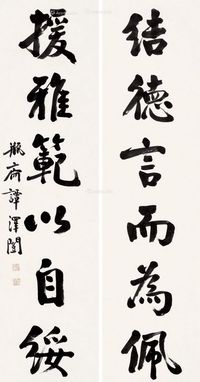 結德言而為佩
援雅範以自綏
瓶齋譚澤闓